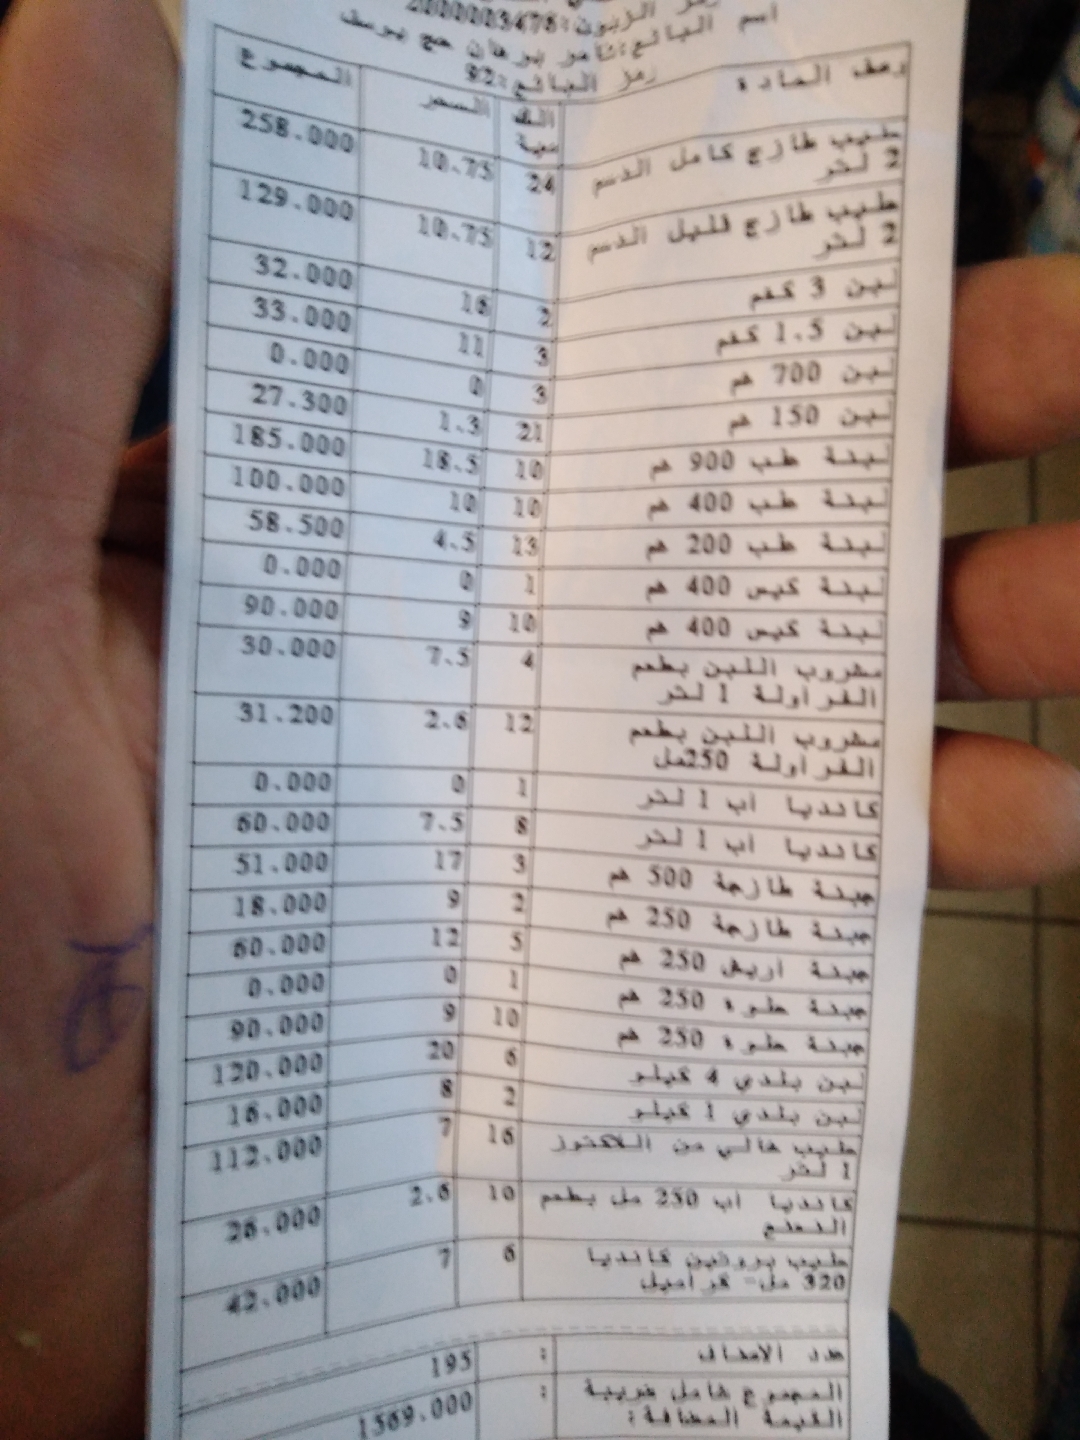 رمز الزبون:2000003478
اسم البائع:ثامر برهان حج يوسف
رمز البائع:92
وصف المادة الكمية السعر المجموع
حليب طازج كامل الدسم 2 لتر 24 10.75 258.000
حليب طازج قليل الدسم 2 لتر 12 10.75 129.000
لبن 3 كغم 2 16 32.000
لبن 1.5 كغم 3 11 33.000
لبن 700 غم 3 0 0.000
لبن 150 غم 21 1.3 27.300
لبنة طب 900 غم 10 18.5 185.000
لبنة طب 400 غم 10 10 100.000
لبنة طب 200 غم 13 4.5 58.500
لبنة كيس 400 غم 1 0 0.000
لبنة كيس 400 غم 10 9 90.000
مشروب اللبن بطعم الفراولة 1 لتر 4 7.5 30.000
مشروب اللبن بطعم الفراولة 250مل 12 2.6 31.200
كانديا اب 1 لتر 1 0 0.000
كانديا اب 1 لتر 8 7.5 60.000
جبنة طازجة 500 غم 3 17 51.000
جبنة طازجة 250 غم 2 9 18.000
جبنة اريش 250 غم 5 12 60.000
جبنة حلوة 250 غم 1 0 0.000
جبنة حلوة 250 غم 10 9 90.000
لبن بلدي 4 كيلو 6 20 120.000
لبن بلدي 1 كيلو 2 8 16.000
حليب خالي من اللاكتوز 1 لتر 16 7 112.000
كانديا اب 250 مل بطعم النعنع 10 2.6 26.000
حليب بروتين كانديا 320 مل- كراميل 6 7 42.000
عدد الاصناف : 195
المجموع شامل ضريبة القيمة المضافة: : 1569.000